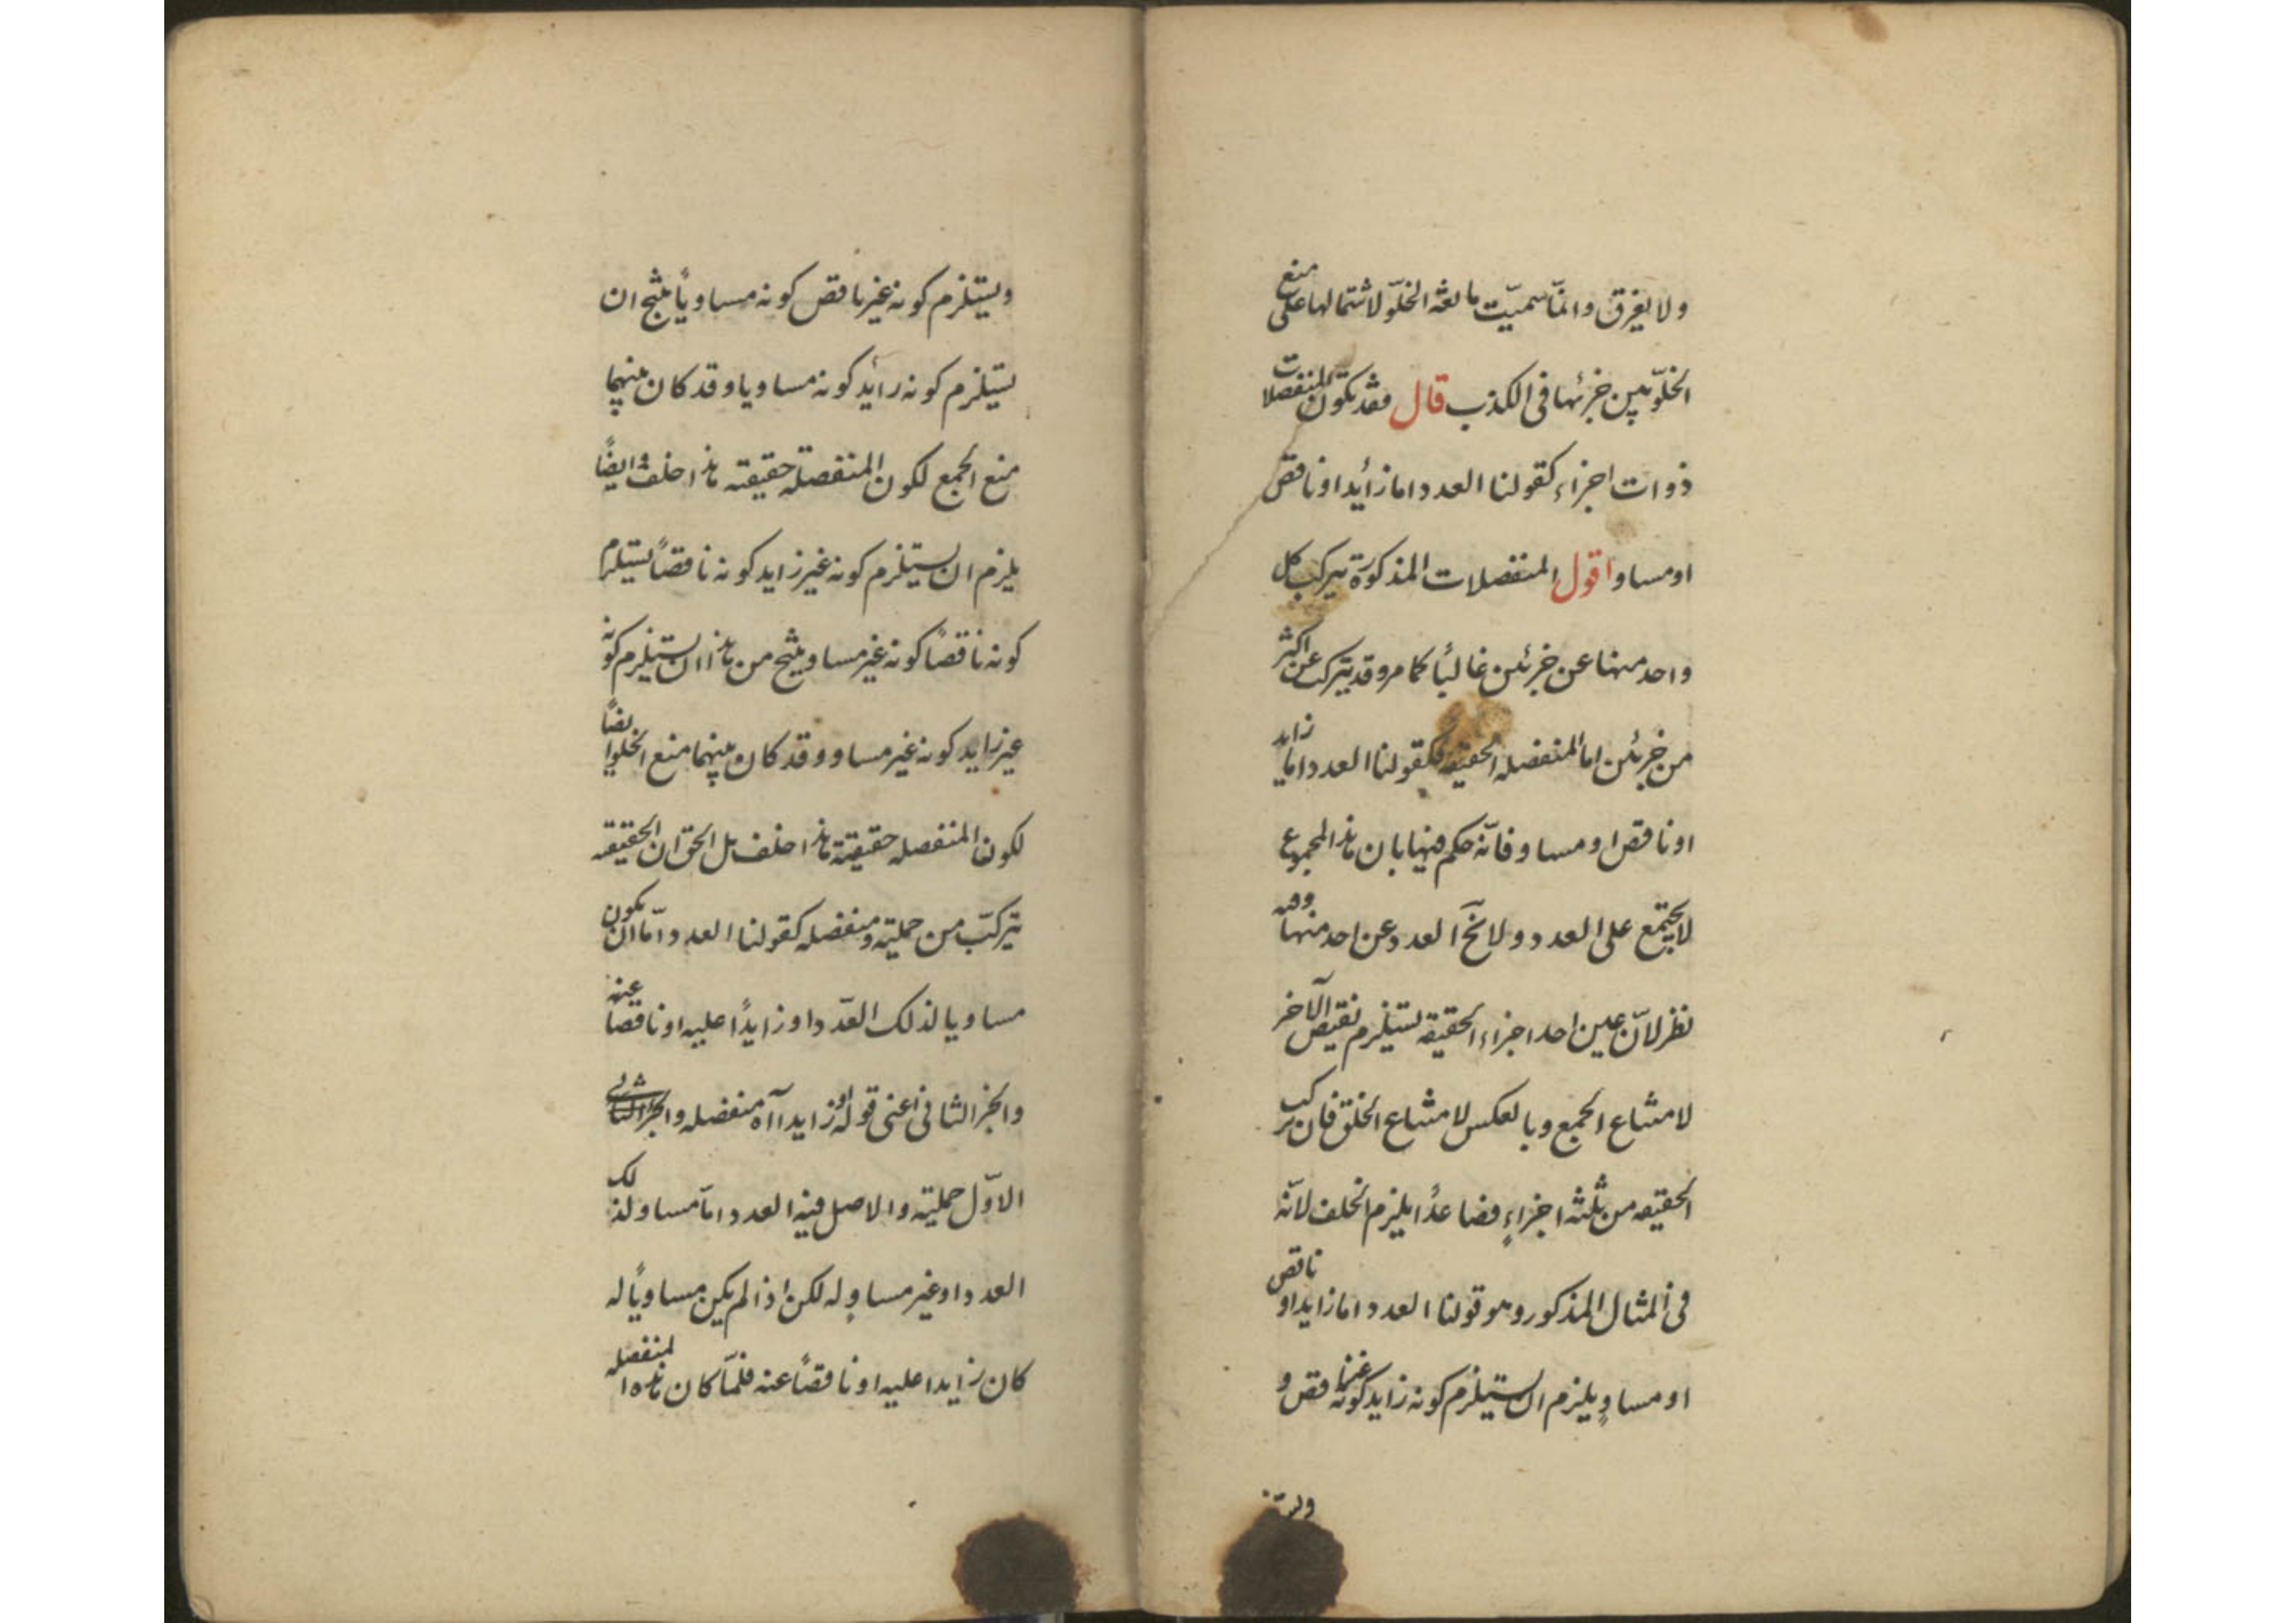 ولا يغرق وانما سميت مانعة الخلو لاشتمالها على منع
الخلو بين جزئها فى الكذب قال وقد يكون المنفصلات
ذوات اجزاء كقولنا العدد اما زائد او ناقص
او مساو اقول المنفصلات المذكورة يتركب كل
واحد منها عن جزئين غالبًا كما مر وقد يتركب عن اكثر
من جزئين اما المنفصله الحقيقه فكقولنا العدد اما زايد
او ناقص او مساو فانّه حكم فيها بان هذا المجموع
لا يجتمع على العدد ولا يخ العدد عن احد منها وفيه
نظر لانّ عين احد اجزاء الحقيقة يستلزم نقيض الآخر
لامتناع الجمع وبالعكس لامتناع الخلو فان تركب
الحقيقه من ثلثه اجزاءٍ فصاعدًا يلزم الخلف لانّه
فى المثال المذكور وهو قولنا العدد اما زايد او ناقص
او مساوٍ يلزم ان يستلزم كونه زايد كونه غير ناقص و
ويستلزم كونه غير ناقص كونه مساويًا ينتج ان
يستلزم كونه زائد كونه مساويا وقد كان بينهما
منع الجمع لكون المنفصلة حقيقته هذا خلف وايضًا
يلزم ان يستلزم كونه غير زايد كونه ناقصًا يستلزم
كونه ناقصًا كونه غير مساو ينتج من هذا ان يستلزم كونه
غير زايد كونه غير مساو وقد كان بينهما منع الخلو ايضًا
لكونها المنفصله حقيقية هذا خلف بل الحق ان الحقيقه
يتركّب من حملية ومنفصله كقولنا العدد امّا ان يكون
مساويا لذلك العدد او زايدًا عليه او ناقصا عنه
والجزء الثانى اعنى قوله او زايدا آه منفصله والجزء الثانى
الاوّل حملية والاصل فيه العدد امّا مساو لذلك
العدد او غير مساوٍ له لكن اذا لم يكن مساويًا له
كان زايدا عليه او ناقصًا عنه فلمّا كان هذه المنفصله